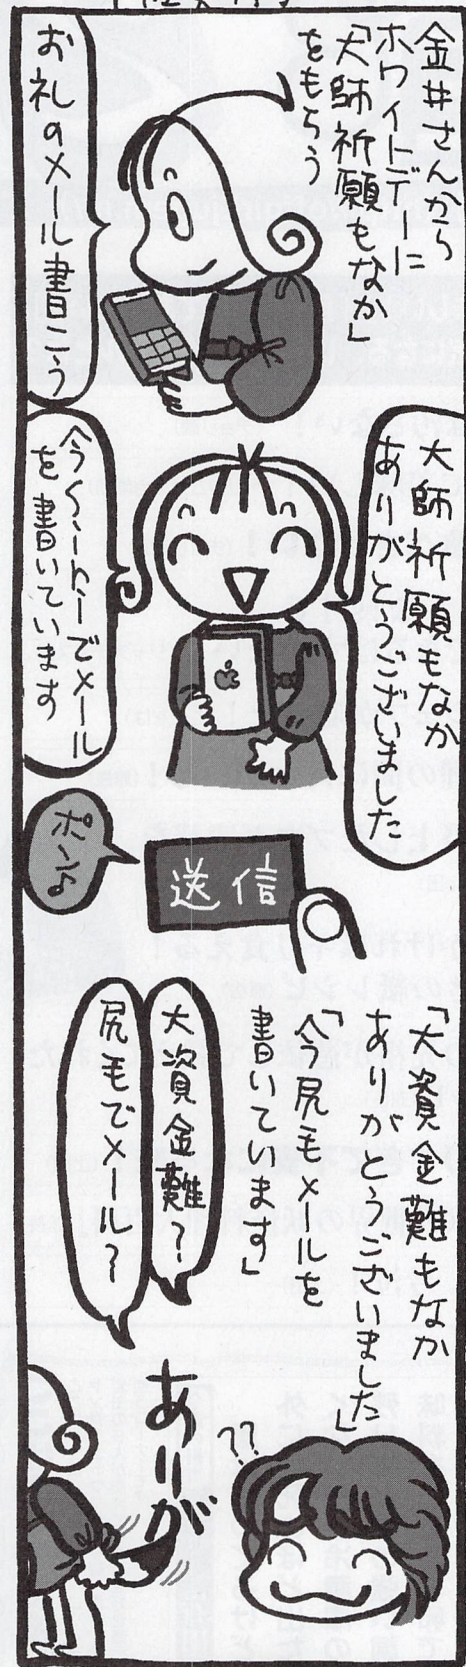 金井さんから
ホワイトデーに
「大師祈願もなか」
をもらう
お礼のメール書こう
大師祈願もなか
ありがとうございました
今くいーんーでメール
を書いています
送信
ポン♪
「大資金難もなか
ありがとうございました」
「今尻毛メールを
書いています」
大資金難？
尻毛でメール？
??
ありが